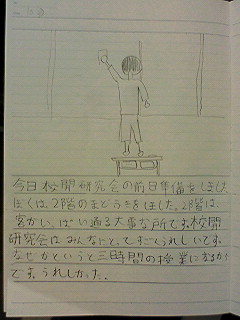 今日校開研究会の前日準備をしました
ぼくは、2階のまどふきをしました。2階は、
客がいっぱい通る大事な所です。校開
研究会はみんなにとってすごくうれしいです。
なぜかというと三時間の授業になるから
です。うれしかった。